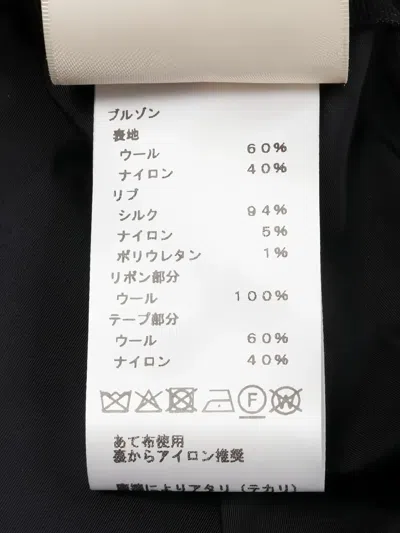 ブルゾン
表地
ウール 60%
ナイロン 40%
リブ
シルク 94%
ナイロン 5%
ポリウレタン 1%
リボン部分
ウール 100%
テープ部分
ウール 60%
ナイロン 40%
F W
あて布使用
裏からアイロン推奨
によりアタリ(テカリ)